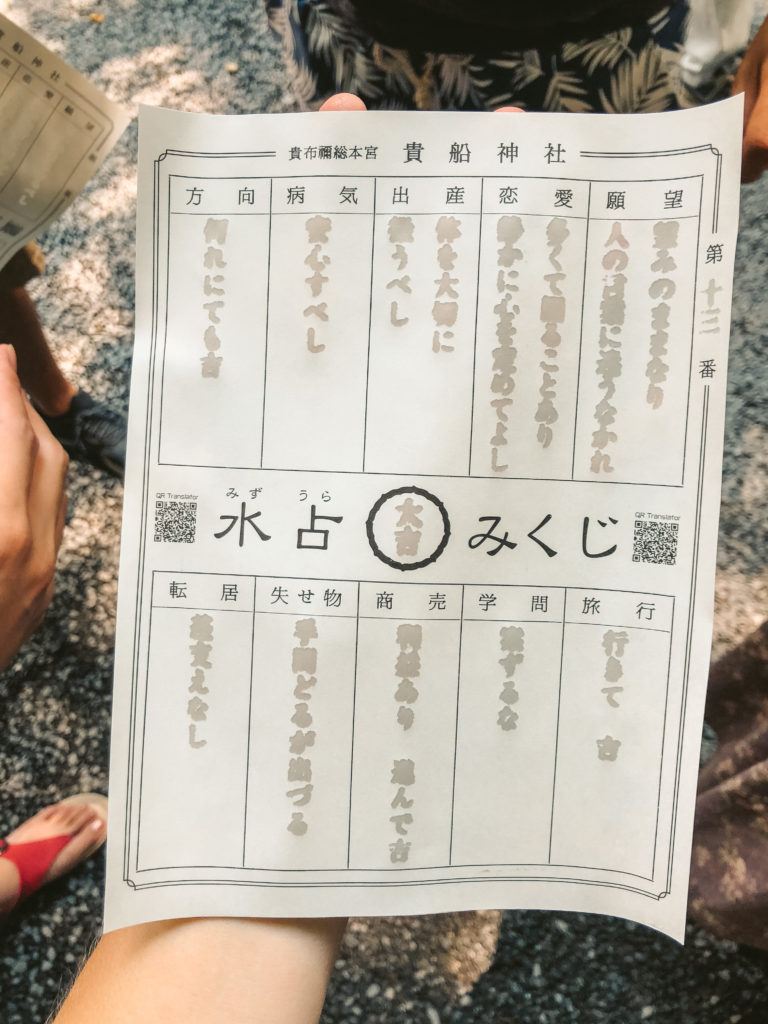 貴布禰総本宮 貴船神社
第十三番
願望
望みのままなり
人の言葉に迷うなかれ
恋愛
多くて困ることあり
静かに心を定めてよし
出産
体を大切に
養うべし
病気
安心すべし
方向
何れにても吉
QR Translator
みず うら
水占 大吉 みくじ
QR Translator
旅行
行きて 吉
学問
案ずるな
商売
利益あり 進んで吉
失せ物
手間どるが出づる
転居
差支えなし
船神社